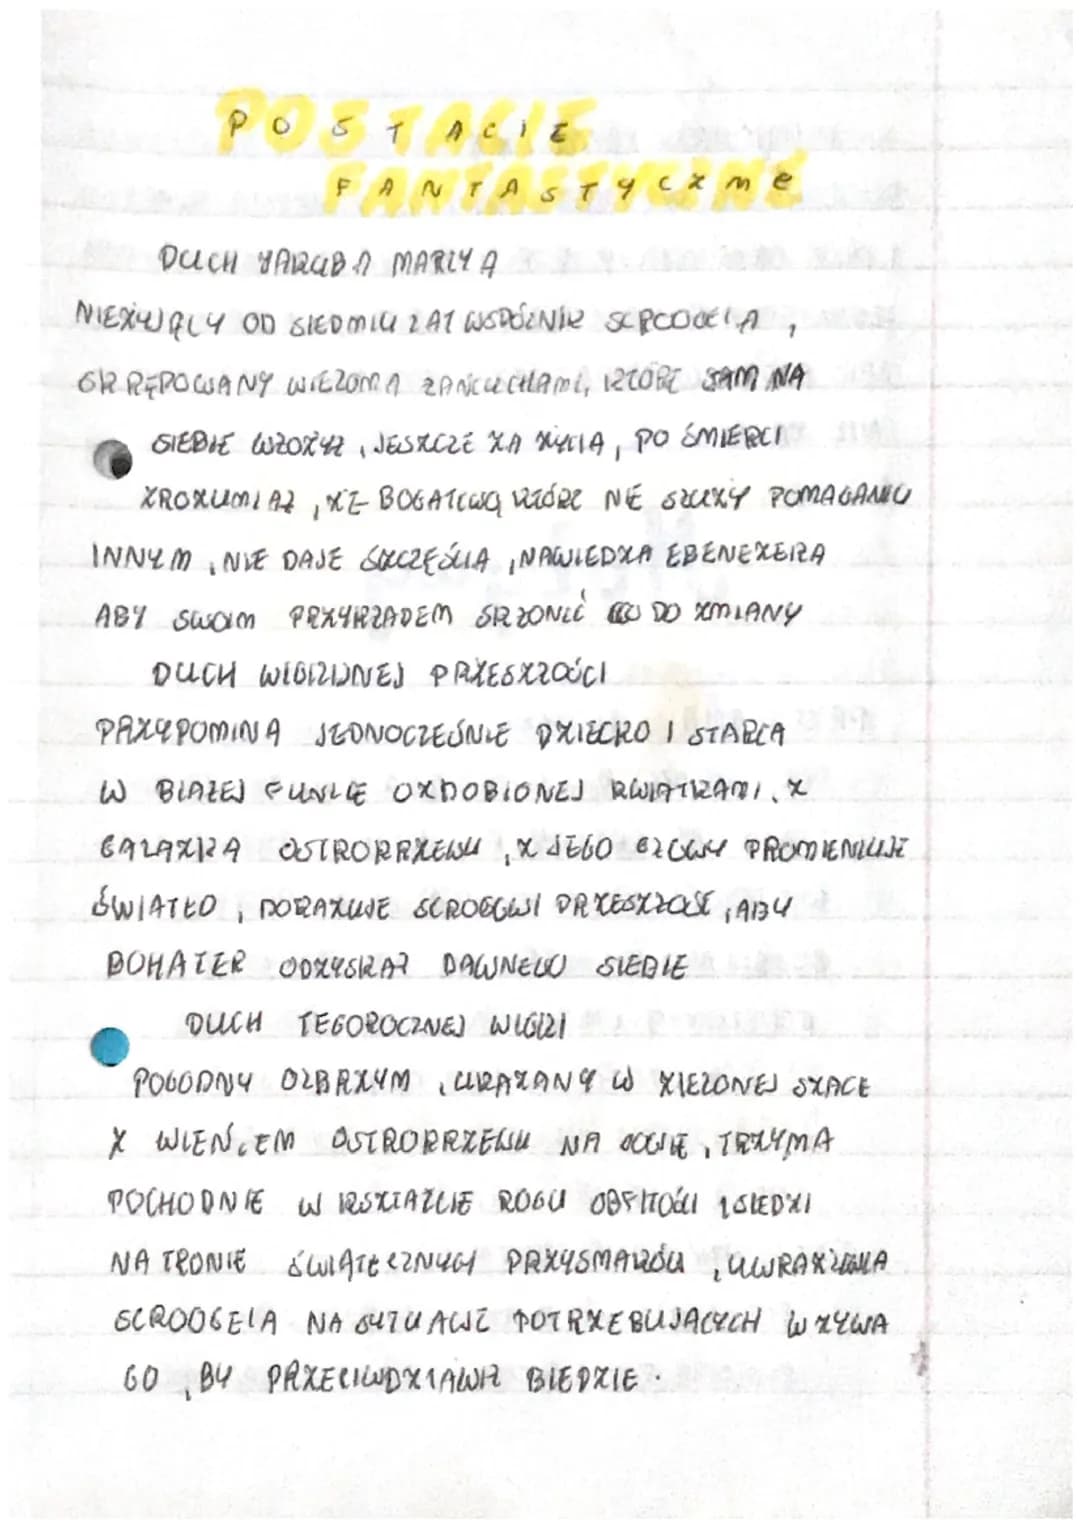 POSTACIE
FANTASTYCZNE
DUCH JAKUBA MARLYA
NIEŻYJĄCY OD SIEDMIU LAT WSPÓLNIK SCROOGE'A,
SKRĘPOWANY WIELOMA ŁAŃCUCHAMI, KTÓRE SAM NA
SIEBIE WŁOŻYŁ, JESZCZE ZA ŻYCIA, PO ŚMIERCI
ZROZUMIAŁ, ŻE BOGATCWO, KTÓRE NIE SŁUŻY POMAGANIU
INNYM, NIE DAJE SZCZĘŚCIA, NAWIEDZA EBENEZERA
ABY SWOIM PRZYKŁADEM SKŁONIĆ GO DO ZMIANY
DUCH WIGILIJNEJ PRZESZŁOŚCI
PRZYPOMINA JEDNOCZEŚNIE DZIECKO I STARCA
W BIAŁEJ TUNICE OZDOBIONEJ KWIATKAMI, Z
GAŁĄZKĄ OSTROKRZEWU, Z JEGO GŁOWY PROMIENIUJE
ŚWIATŁO, POKAZUJE SCROOGOWI PRZESZŁOŚĆ, ABY
BOHATER ODZYSKAŁ DAWNEGO SIEBIE
DUCH TEGOROCZNEJ WIGILI
POGODNY OLBRZYM, UKAZANY W ZIELONEJ SZACIE
Z WIEŃCEM OSTROKRZEWU NA GŁOWIE, TRZYMA
POCHODNIE W KSZTAŁCIE ROGU OBFITOŚCI I SIEDZI
NA TRONIE ŚWIĄTECZNYCH PRZYSMAKÓW, UWRAŻLIWIA
SCROOGE'A NA SYTUACJE POTRZEBUJĄCYCH WZYWA
GO, BY PRZECIWDZIAŁAŁ BIEDZIE.